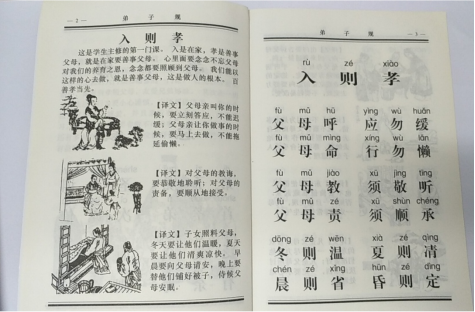 2 弟子规
入则孝
这是学生主修的第一门课。入是在家,孝是善事
父母,就是在家要善事父母。心里面要念念不忘父母
对我们的养育之恩,念念都要照顾到父母。我们能以
这样的心去做,就是善事父母,这是做人的根本。百
善孝当先。
【译文】父母亲叫你的时
候,要立刻答应,不能迟
缓;父母亲让你做事的时
候,要马上去做,不能拖
延偷懒。
【译文】对父母的教诲,
要恭敬地聆听;对父母的
责备,要顺从地接受。
【译文】子女照料父母,
冬天要让他们温暖,夏天
要让他们清爽凉快。早
晨要向父母请安,晚上要
替他们铺好被子,侍候父
母安眠。
弟子规 3
rù zé xiào
入则孝
fù mǔ hū yìng wù huǎn
父母呼 应勿缓
fù mǔ mìng xíng wù lǎn
父母命 行勿懒
fù mǔ jiào xū jìng tīng
父母教 须敬听
fù mǔ zé xū shùn chéng
父母责 须顺承
dōng zé wēn xià zé qìng
冬则温 夏则凊
chén zé xǐng hūn zé dìng
晨则省 昏则定